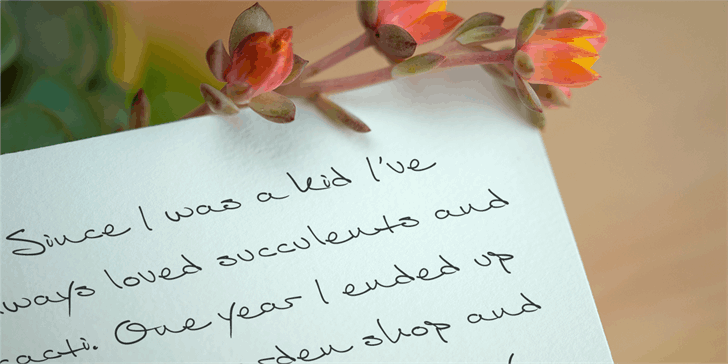 Since I was a kid I've
always loved succulents and
cacti. One year I ended up
garden shop and